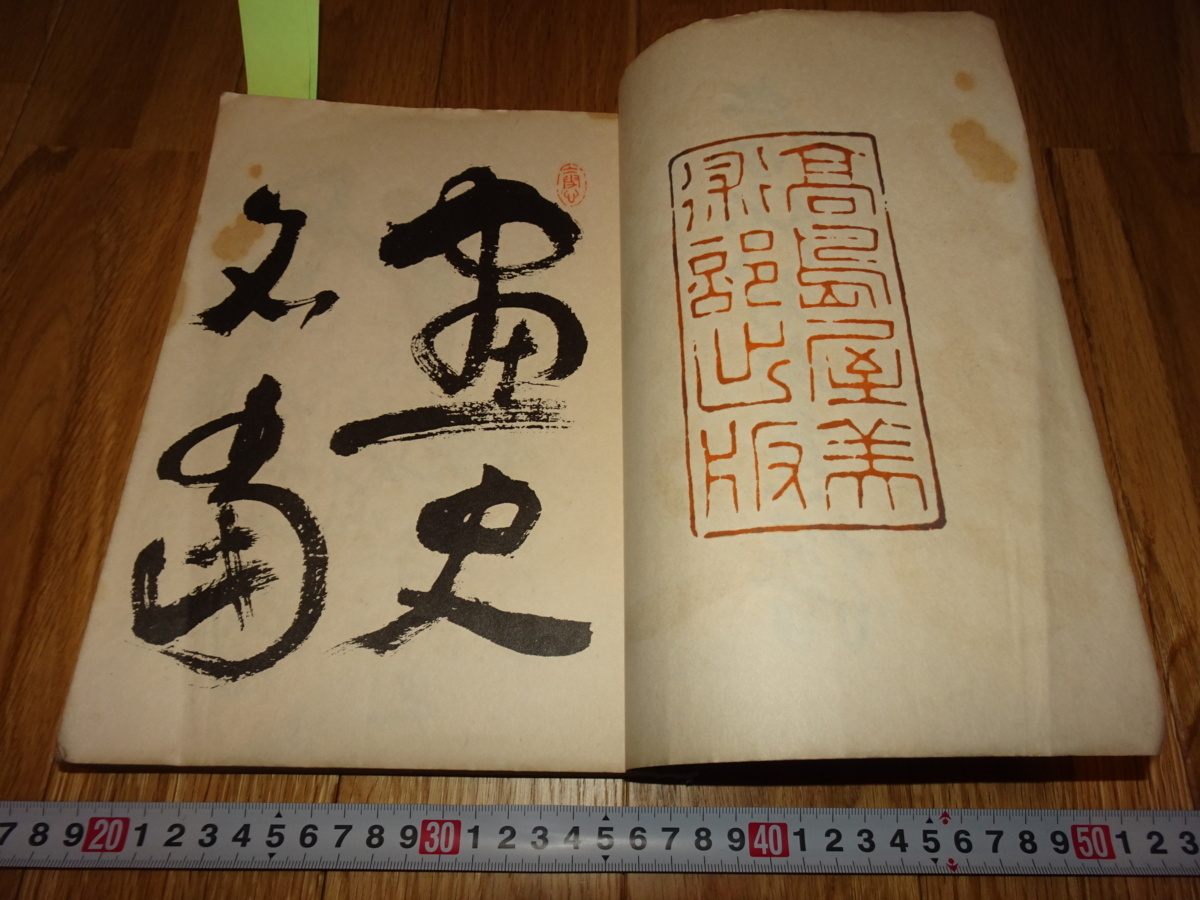 高島屋美
術部出版
畫史
7 8 9 20 1 2 3 4 5 6 7 8 9 30 1 2 3 4 5 6 7 8 9 40 1 2 3 4 5 6 7 8 9 50 1 2 3